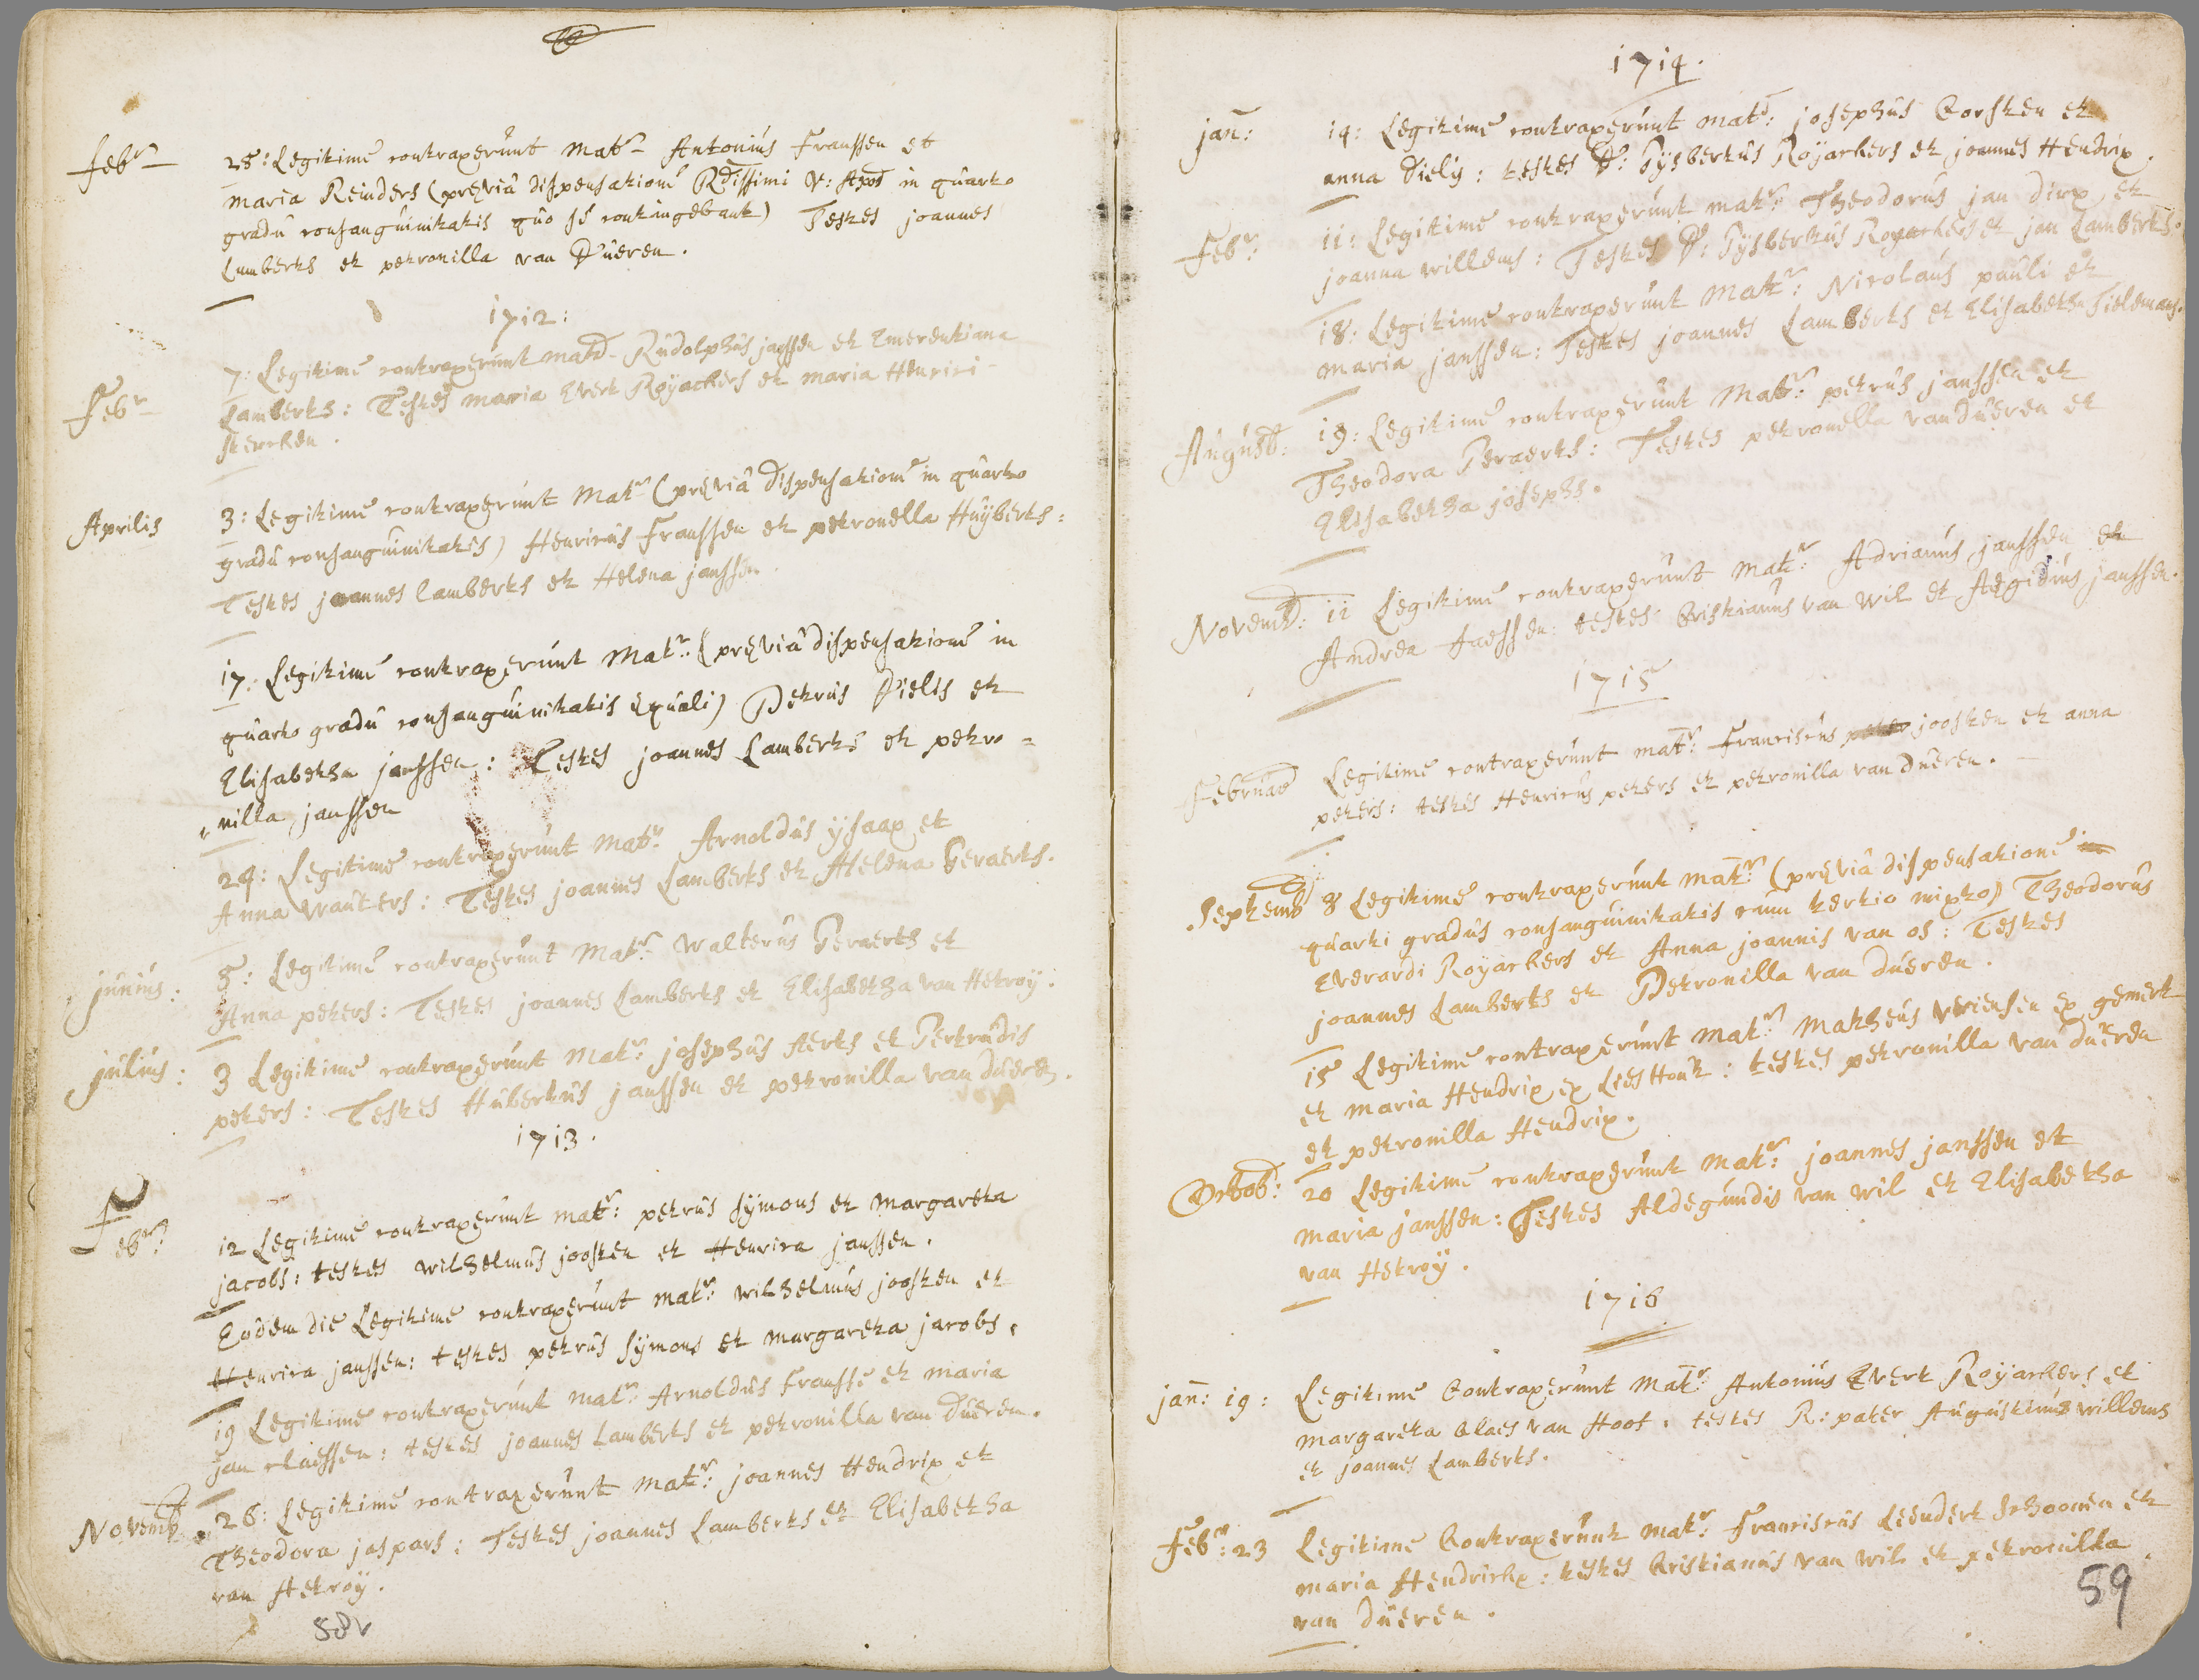 Feb:r 28: Legitime contraxerunt Mat:r Antonius Franssen et
maria Reinders (prævia dispensatione Rdissimi V: Apos in quarto
gradu consanguinitatis quo se contingebant) Testes joannes
Lamberts et petronilla van Dueren.
1712:
Feb:r 7: Legitime contraxerunt matr Rudolphus janssen et Emerentiana
Lamberts: Testes maria Evert Royackers et maria Henrici
Aprilis 3: Legitime contraxerunt Mat:r (prævia dispensatione in quarto
gradu consanguinitatis) Henricus Franssen et petronella Huyberts:
Testes joannes Lamberts et Helena janssen.
17: Legitime contraxerunt Mat:r (prævia dispensatione in
quarto gradu consanguinitatis equali) Petrus Dielis et
Elisabetha janssen: Testes joannes Lamberts et petro=
nilla janssen
24: Legitime contraxerunt Mat:r Arnoldus ysaax et
Anna wauters: Testes joannes Lamberts et Helena Geraerts.
junius: 5: Legitime contraxerunt Mat:r Walterus Geraerts et
Anna peters: Testes joannes Lamberts et Elisabetha van Hetroy.
julius: 3 Legitime contraxerunt Mat:r josephus Aerts et Gertrudis
peters: Testes Hubertus janssen et petronilla van dueren.
1713.
Feb:r 12 Legitime contraxerunt mat:r petrus symons et margareta
jacobs: testes wilhelmus joosten et Henrica janssen.
Eodem die Legitime contraxerunt mat:r wilhelmus joosten et
Henrica janssen: testes petrus symons et margareta jacobs.
19 Legitime contraxerunt mat:r Arnoldus Fransse et maria
jan claessen: testes joannes Lamberts et petronilla van dueren.
Novemb 26: Legitime contraxerunt mat:r joannes Hendrix et
Theodora jaspars: Testes joannes Lamberts et Elisabetha
van Hetroy.
58v
1714.
jan: 14: Legitime contraxerunt mat:r josephus Corsten et
anna Dielis: testes D: Gysbertus Royackers et joannes Hendrix.
Feb:r 11: Legitime contraxerunt mat:r Theodorus jan dirx et
joanna willems: Testes D: Gysbertus Royackers et jan Lamberts.
18: Legitime contraxerunt Mat:r Nicolaus pauli et
maria janssen: Testes joannes Lamberts et Elisabetha Tielemans.
August: 19: Legitime contraxerunt Mat:r petrus janssen et
Theodora Geraerts: Testes petronella van dueren et
Elisabetha josephs.
Novemb: 11 Legitime contraxerunt Mat:r Adrianus janssen et
Andrea Faessen: testes Cristianus van wil et Aegidius janssen.
1715
Februar Legitime contraxerunt mat:r Franciscus joosten et anna
peters: testes Henricus peters et petronilla van dueren.
Septemb 8 Legitime contraxerunt mat:r (prævia dispensatione in
quarti gradus consanguinitatis cum tertio mixto) Theodorus
Everardi Royackers et Anna joannis van os: Testes
joannes Lamberts et Petronilla van dueren.
15 Legitime contraxerunt mat:r Matheus Vriensen ex gemert
et maria Hendrix ex Lieshout: testes petronilla van dueren
et petronilla Hendrix.
Octob: 20 Legitime contraxerunt mat:r joannes janssen et
maria janssen: Testes Aldegundis van wil et Elisabetha
van Hetroy.
1716
jan: 19: Legitime Contraxerunt Mat:r Antonius Evert Royackers et
margareta Claes van Hoof: testes R: pater Augustinus willems
et joannes Lamberts.
Feb:r 23 Legitime Contraxerunt mat:r Franciscus Leendert Schoomen et
maria Hendrickx: testes Cristianus van wil et petronilla
van dueren.
59